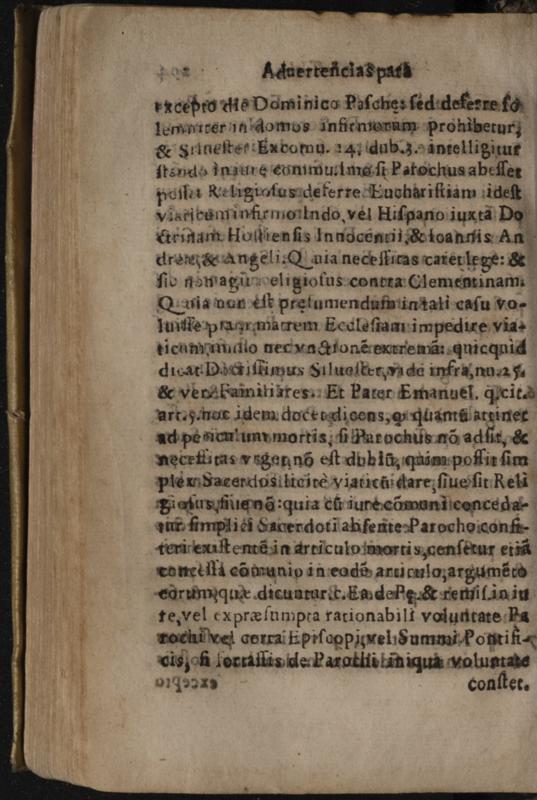 Aduertencias para
excepto die Dominico Pasche: sed deferre so
lemniter in domos infirmorum prohibetur,
& Siluester Excomu. 14. dub. 3. intelligitur
stando in iure commu. Imo si Parochus abesset
posset Religiosus deferre Eucharistiam idest
viaticum infirmo Indo, vel Hispano iuxtà Do
ctrinam Hostiensis Innocentii, & Ioannis An
dreæ, & Angeli. Quia necessitas caret lege: &
sic non agit religiosus contra Clementinam.
Quia non est presumendum in tali casu vo-
luisse matrem Ecclesiam impedire via-
ticum, nec vnctionē extremā: quicquid
dicat Doctissimus Siluester, vide infra, nu. 25.
& verb. Familiares. Et Pater Emanuel. q. cit.
art. 5. hoc idem docet dicens, q̄ quantū attinet
ad periculum mortis, si Parochus nō adsit, &
necessitas vrget, nō est dubiū, quim possit sim
plex Sacerdos licitè viaticū dare, siue sit Reli
giosus, siue nō: quia cū iure cōmuni conceda-
tur simplici Sacerdoti absente Parocho confi-
teri existentē in articulo mortis, censetur etiā
concessa cōmunio in eodē articulo, argumēto
eorum, quæ dicuntur. c. Ea. de Pę. & remis. in iu
re, vel expræsumpta rationabili voluntate Pa
rochi vel certa Episcopi, vel Summi Pontifi-
cis, si fortassis de Parochi iniqua voluntate
constet.